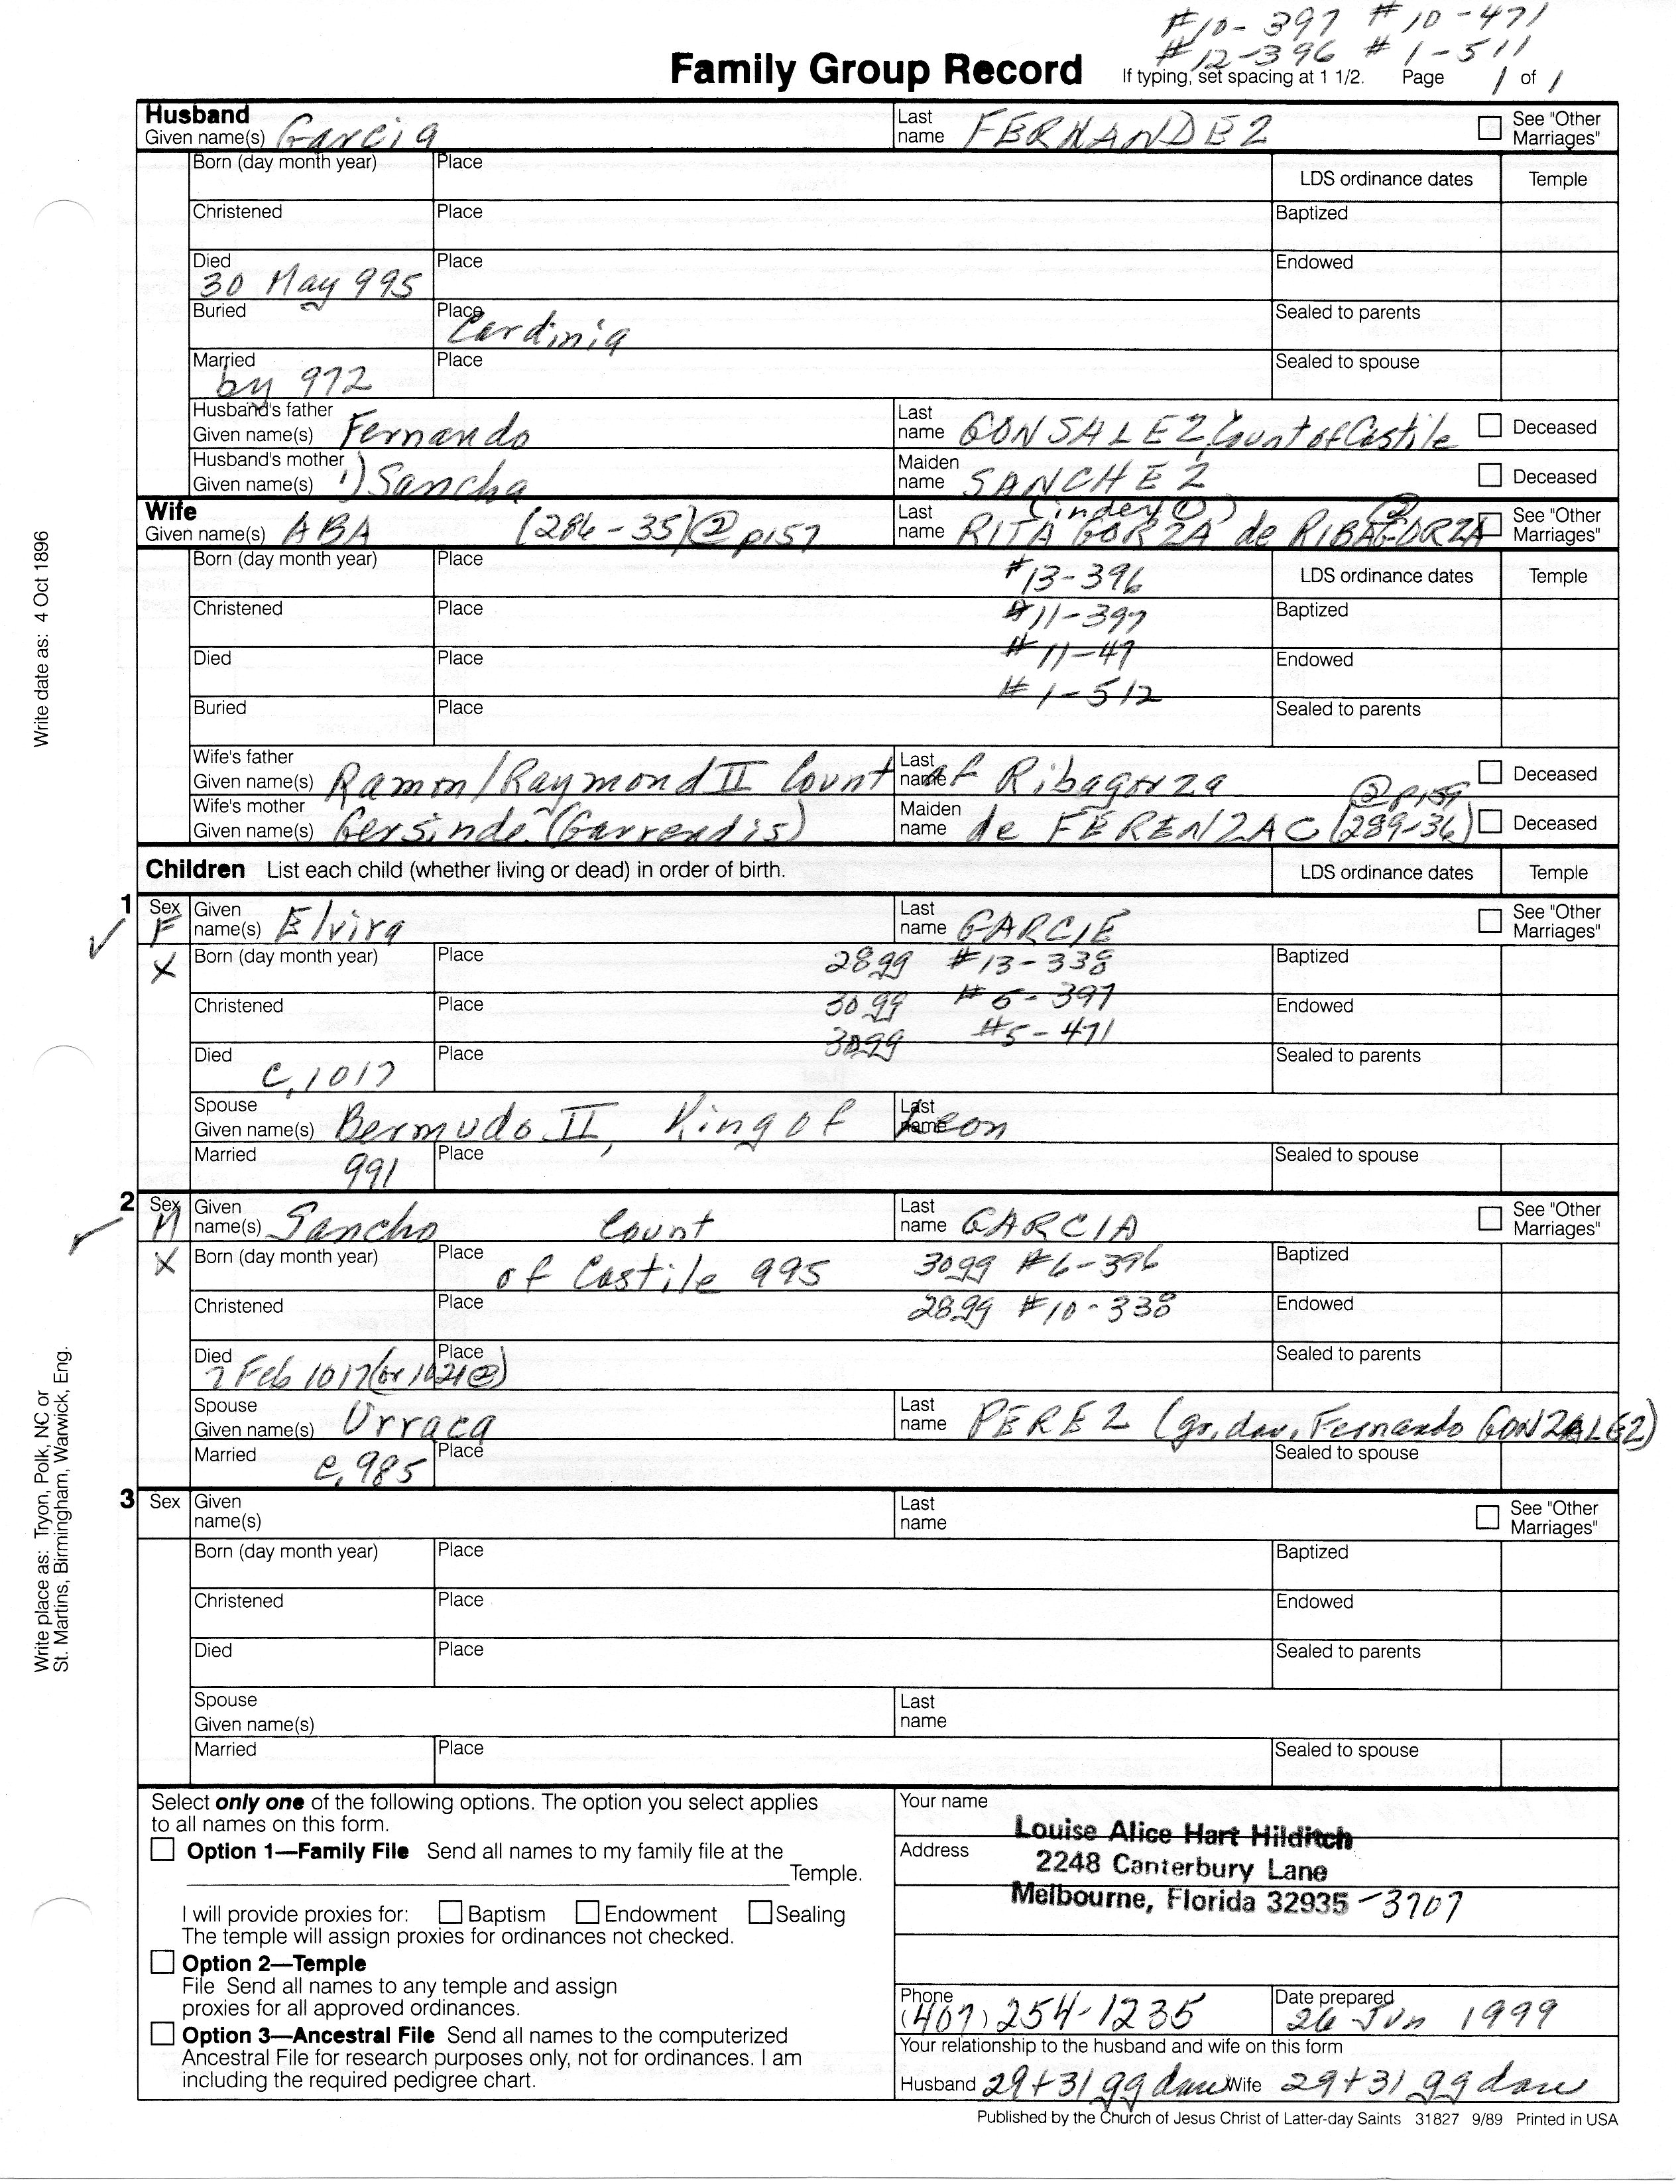 #10-397 #10-471
#12-396 #1-511
Family Group Record If typing, set spacing at 1 1/2. Page 1 of 1
Husband
Given name(s) Garcia Last name FERNANDEZ See "Other Marriages"
Born (day month year) Place LDS ordinance dates Temple
Christened Place Baptized
Died 30 May 995 Place Endowed
Buried Place Cardinia Sealed to parents
Married by 972 Place Sealed to spouse
Husband's father Given name(s) Fernando Last name GONSALEZ, Count of Castile Deceased
Husband's mother Given name(s) 1) Sancha Maiden name SANCHEZ Deceased
Wife
Given name(s) ABA (286-35)@ p157 Last name RITA GORZA (index ①) de RIBAGORZA ② See "Other Marriages"
Born (day month year) Place #13-396 LDS ordinance dates Temple
Christened Place #11-397 Baptized
Died Place #11-47 Endowed
Buried Place #1-512 Sealed to parents
Wife's father Given name(s) Ramon/Raymond II Count Last name of Ribagorza Deceased
Wife's mother Given name(s) Gersinde (Garrendis) Maiden name de FERENZAC (289-36) @ p159 Deceased
Children List each child (whether living or dead) in order of birth. LDS ordinance dates Temple
1 Sex F Given name(s) Elvira Last name GARCIE See "Other Marriages"
X Born (day month year) Place 28gg #13-338 Baptized
Christened Place 30gg #6-397 Endowed
30gg #5-471
Died c.1017 Place Sealed to parents
Spouse Given name(s) Bermudo II, King of Last name Leon
Married 991 Place Sealed to spouse
2 Sex M Given name(s) Sancho Count Last name GARCIA See "Other Marriages"
X Born (day month year) Place of Castile 995 30gg #6-396 Baptized
Christened Place 28gg #10-338 Endowed
Died 7 Feb 1017 (or 1021@) Place Sealed to parents
Spouse Given name(s) Urraca Last name PEREZ (gr. dau. Fernando GONZALEZ)
Married c.985 Place Sealed to spouse
3 Sex Given name(s) Last name See "Other Marriages"
Born (day month year) Place Baptized
Christened Place Endowed
Died Place Sealed to parents
Spouse Given name(s) Last name
Married Place Sealed to spouse
Select only one of the following options. The option you select applies
to all names on this form.
Option 1—Family File Send all names to my family file at the
Temple.
I will provide proxies for: Baptism Endowment Sealing
The temple will assign proxies for ordinances not checked.
Option 2—Temple
File Send all names to any temple and assign
proxies for all approved ordinances.
Option 3—Ancestral File Send all names to the computerized
Ancestral File for research purposes only, not for ordinances. I am
including the required pedigree chart.
Your name Louise Alice Hart Hilditch
Address 2248 Canterbury Lane
Melbourne, Florida 32935 -3707
Phone (407) 254-1235 Date prepared 26 Jun 1999
Your relationship to the husband and wife on this form
Husband 29+31 gg dau Wife 29+31 gg dau
Published by the Church of Jesus Christ of Latter-day Saints 31827 9/89 Printed in USA
Write date as: 4 Oct 1896
Write place as: Tryon, Polk, NC or
St. Martins, Birmingham, Warwick, Eng.